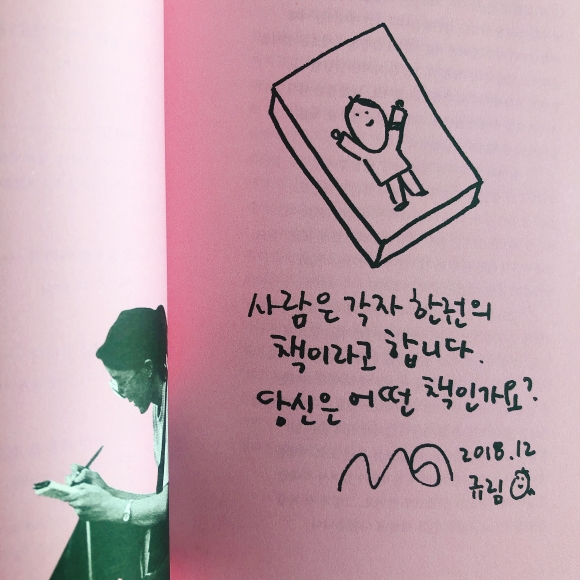 사람은 각자 한권의
책이라고 합니다.
당신은 어떤 책인가요?
2018.12
규림